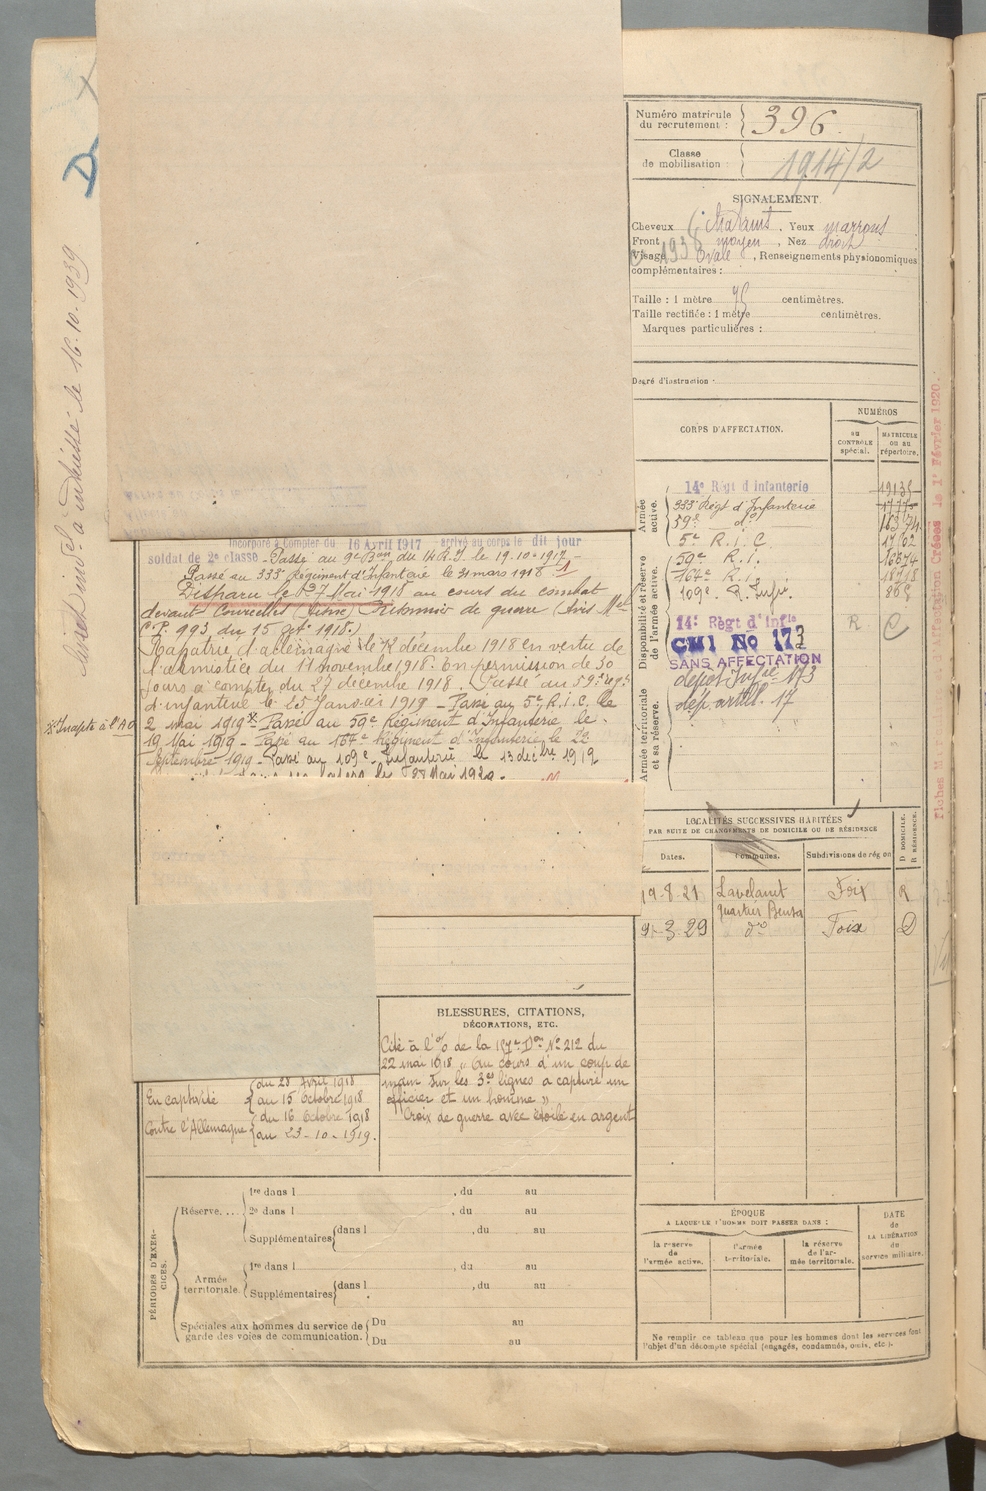 Numéro matricule du recrutement : 396.
Classe de mobilisation : 1914/2
SIGNALEMENT.
Cheveux châtains, Yeux marrons
Front moyen, Nez droit
Visage Ovale, Renseignements physionomiques
complémentaires :
Taille : 1 mètre 75 centimètres.
Taille rectifiée : 1 mètre centimètres.
Marques particulières :
Degré d'instruction
CORPS D'AFFECTATION.
NUMÉROS
au CONTRÔLE spécial.
MATRICULE ou au répertoire.
Armée active.
14e Régt d'Infanterie
333e Régt d'Infanterie
59e do
5e R.I.C
Disponibilité et réserve de l'armée active.
59e R.I.
167e R.I.
109e R. Infie.
14e Régt d'Infie R C
CMI No 173
SANS AFFECTATION
dépôt Infie 173
dép. artill. 17
Armée territoriale et sa réserve.
D
classé ind. à
le 16.10.1939
Incorporé à Compter du 16 Avril 1917 arrivé au corps le dit jour
soldat de 2e classe - Passé au 9e Bon du 14 R.I. le 19-10-1917 -
Passé au 333e Régiment d'Infanterie le 31 mars 1918
Disparu le 27 Mai 1918 au cours du combat
devant Courcelles (Aisne) Prisonnier de guerre (Avis Mel
C.P. 993 du 15 7bre 1918.)
Rapatrié d'allemagne le 12 décembre 1918 en vertu de
l'armistice du 11 novembre 1918. En permission de 30
jours à compter du 27 décembre 1918. Passé au 59e Régt
d'infanterie le 25 Janvier 1919 - Passé au 5e R.I.C. le
2 mai 1919 x Passé au 59e Régiment d'Infanterie le
19 Mai 1919 - Passé au 167e Régiment d'Infanterie le 22
Septembre 1919 - Passé au 109e Infanterie le 13 décbre 1919
28 Mai 1920.
x Inapte à l'A O
Fiches
d'Affectation Créées le 1er Février 1920.
LOCALITÉS SUCCESSIVES HABITÉES
PAR SUITE DE CHANGEMENTS DE DOMICILE OU DE RÉSIDENCE
Dates. Communes. Subdivisions de région D DOMICILE. R RÉSIDENCE.
19-8-21 Lavelanet Foix R
quartier
9-3-29 do Foix D
BLESSURES, CITATIONS,
DÉCORATIONS, ETC.
Cité à l'o/ de la Don No 212 du
22 mai 1918 "Au cours d'un coup de
main sur les 3es lignes a capturé un
officier et un homme"
Croix de guerre avec étoile en argent
du 28 Avril 1918
En captivité au 15 Octobre 1918
Contre l'Allemagne du 16 Octobre 1918
au 23-10-1919.
PÉRIODES D'EXERCICES.
Réserve.... 1re dans l , du au
2e dans l , du au
Supplémentaires dans l , du au
Armée territoriale. 1re dans l , du au
Supplémentaires dans l , du au
Spéciales aux hommes du service de garde des voies de communication. Du au
Du au
ÉPOQUE
A LAQUELLE L'HOMME DOIT PASSER DANS :
la réserve de l'armée active.
l'armée territoriale.
la réserve de l'armée territoriale.
DATE de LA LIBÉRATION du service militaire.
Ne remplir ce tableau que pour les hommes dont les services font
l'objet d'un décompte spécial (engagés, condamnés, omis, etc.).